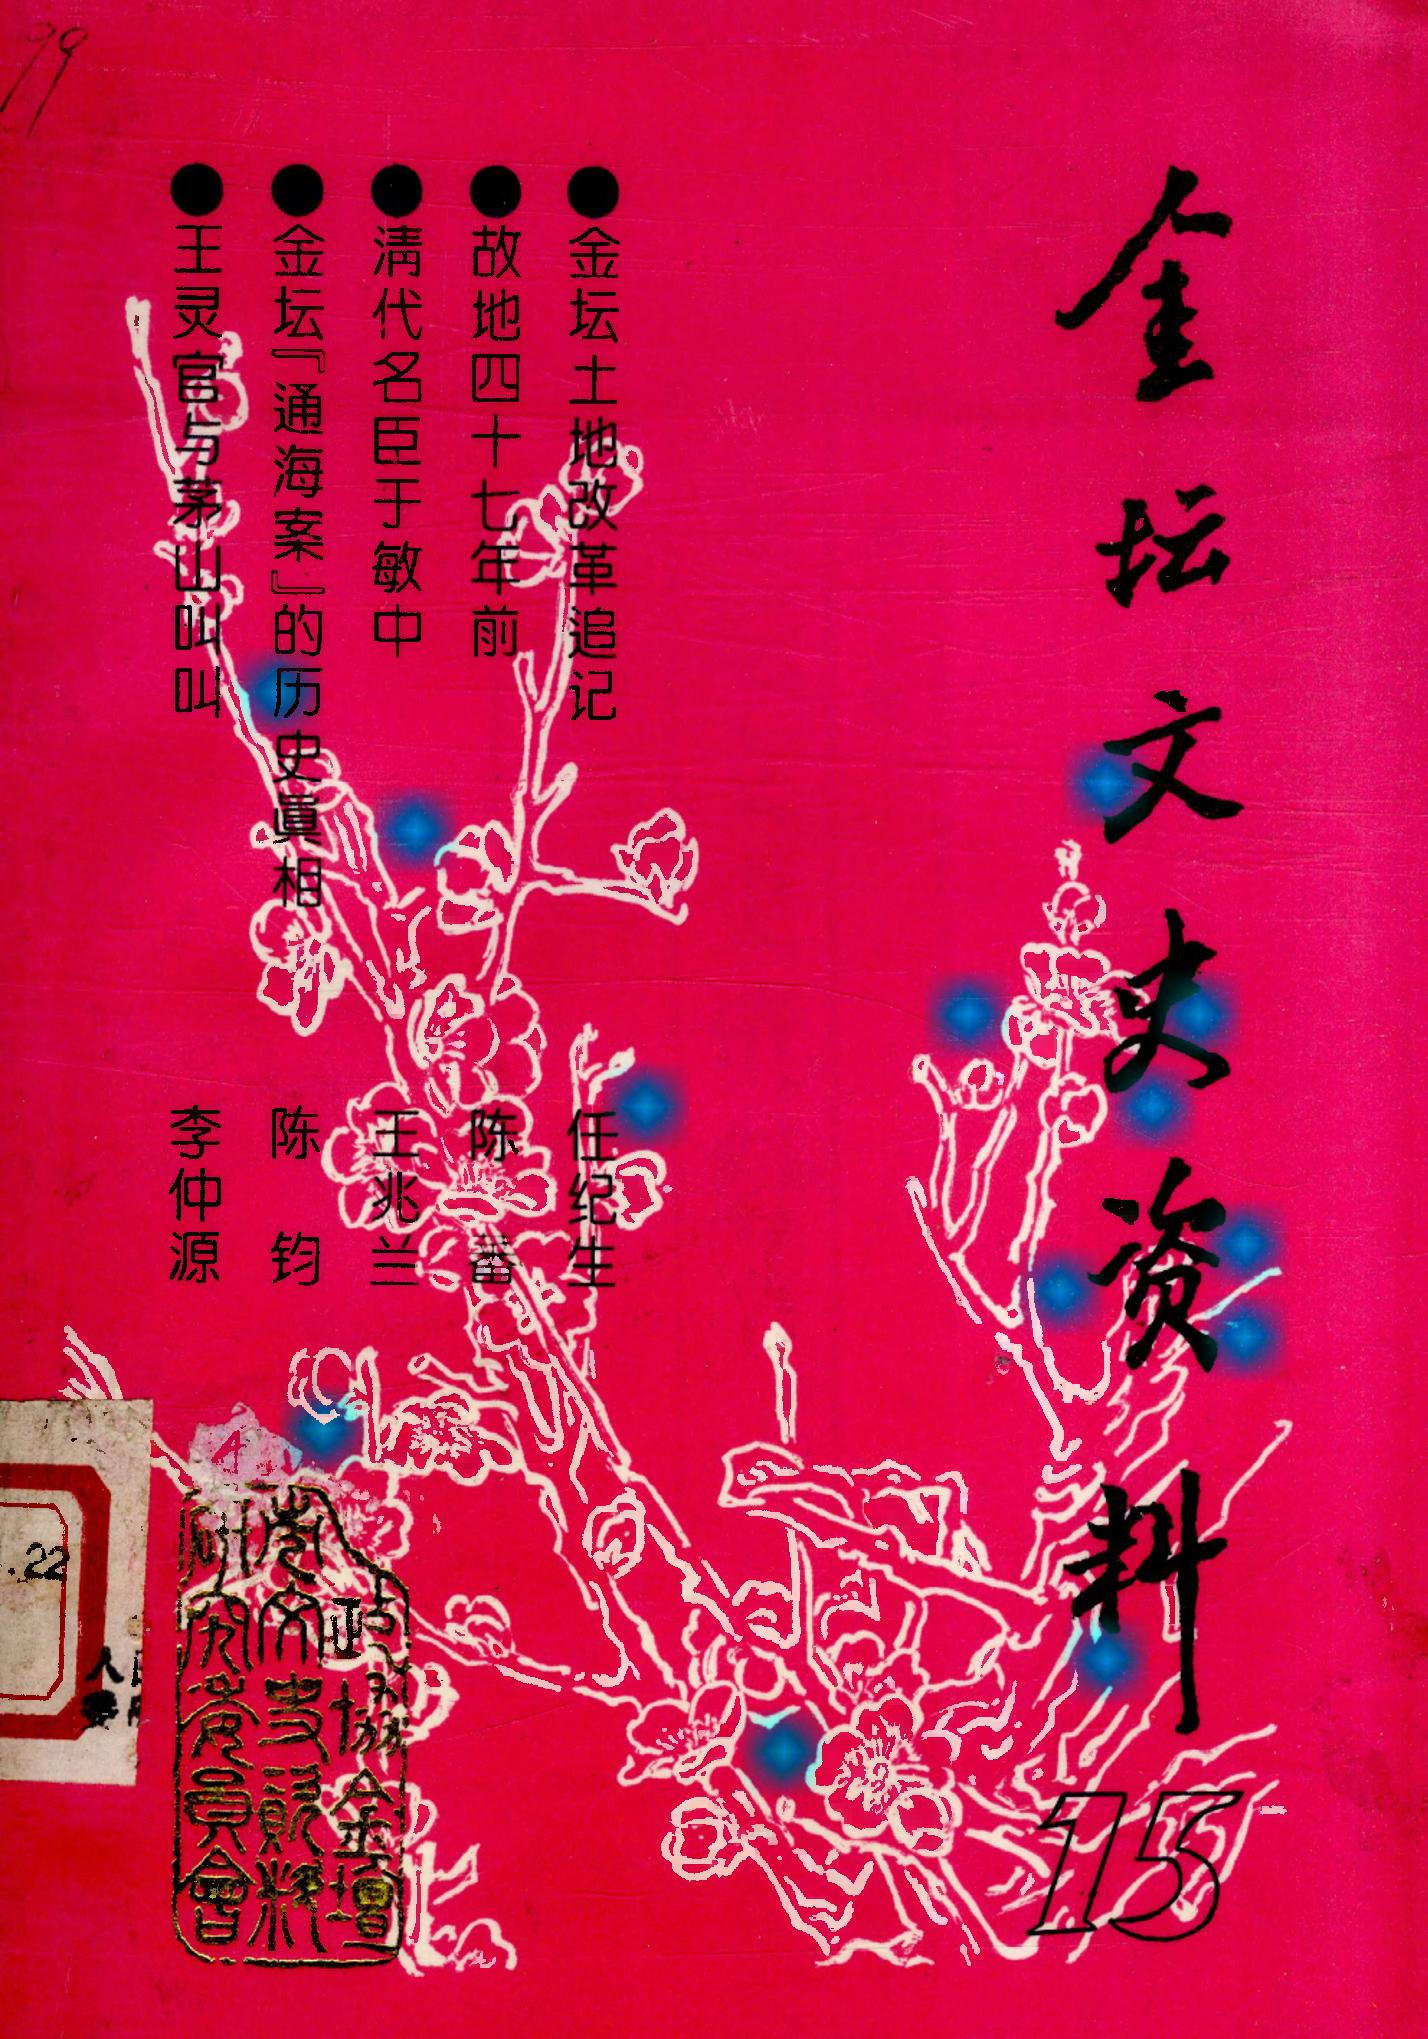 金坛文史资料
15
●金坛土地改革追记 任纪生
●故地四十七年前 陈蕃
●清代名臣于敏中 王兆兰
●金坛『通海案』的历史眞相 陈钧
●王灵官与茅山叫叫 李仲源
政協金壇
文史資料
研究委員會
.22
99